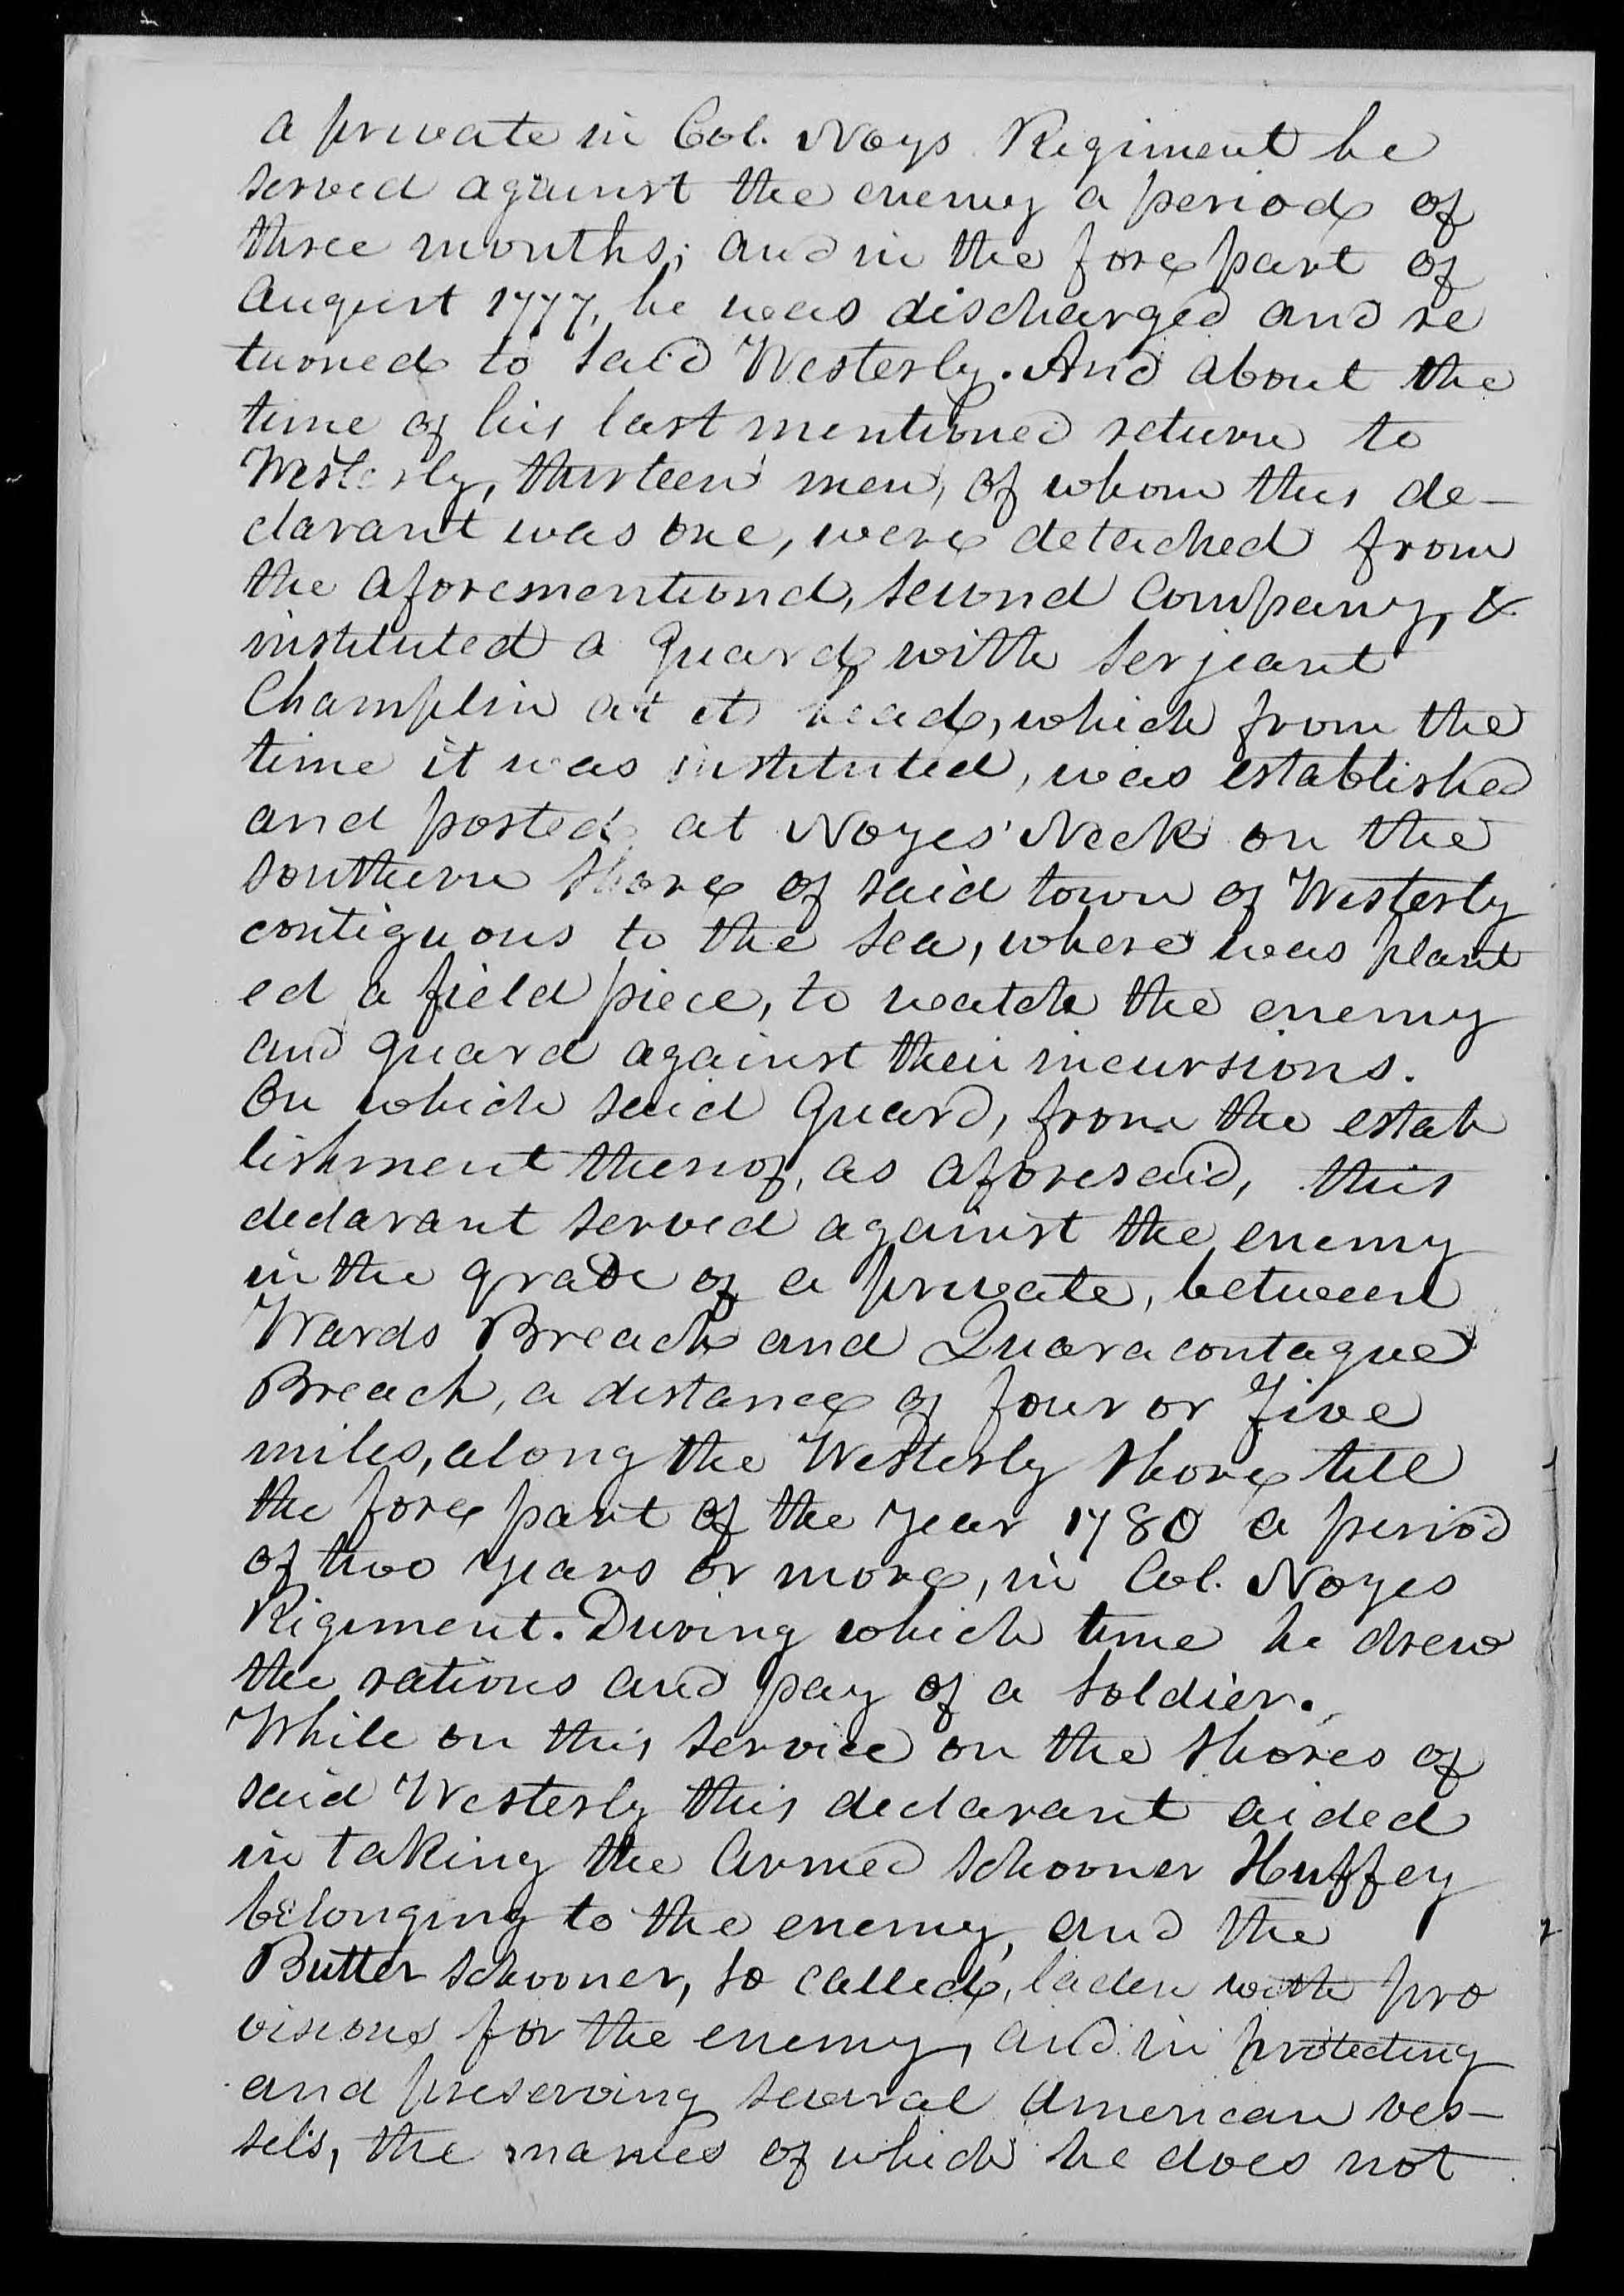 a private in Col. Noys Regiment he
served against the enemy a period of
three months; and in the fore part of
August 1777, he was discharged and re
turned to said Westerly. And about the
time of his last mentioned return to
Westerly, thirteen men, of whom this de-
clarant was one, were detached from
the aforementiond, second Company, &
instituted a Guard with Serjeant
Champlin at its head, which from the
time it was instituted, was established
and posted at Noyes' Neck on the
southern shore of said town of Westerly
contiguous to the sea, where was plant
ed a field piece, to watch the enemy
and guard against their incursions.
On which said Guard, from the estab
lishment thereof, as aforesaid, this
declarant served against the enemy
in the grade of a private, between
Wards Breach and Quaracontague
Breach, a distance of four or five
miles, along the Westerly shore till
the fore part of the year 1780 a period
of two years or more, in Col. Noyes
Regiment. During which time he drew
the rations and pay of a soldier.
While on this service on the shores of
said Westerly this declarant aided
in taking the armed schooner Huffey
belonging to the enemy, and the
Butter schooner, so called, laden with pro
visions for the enemy, and in protecting
and preserving several American ves-
sels, the names of which he does not